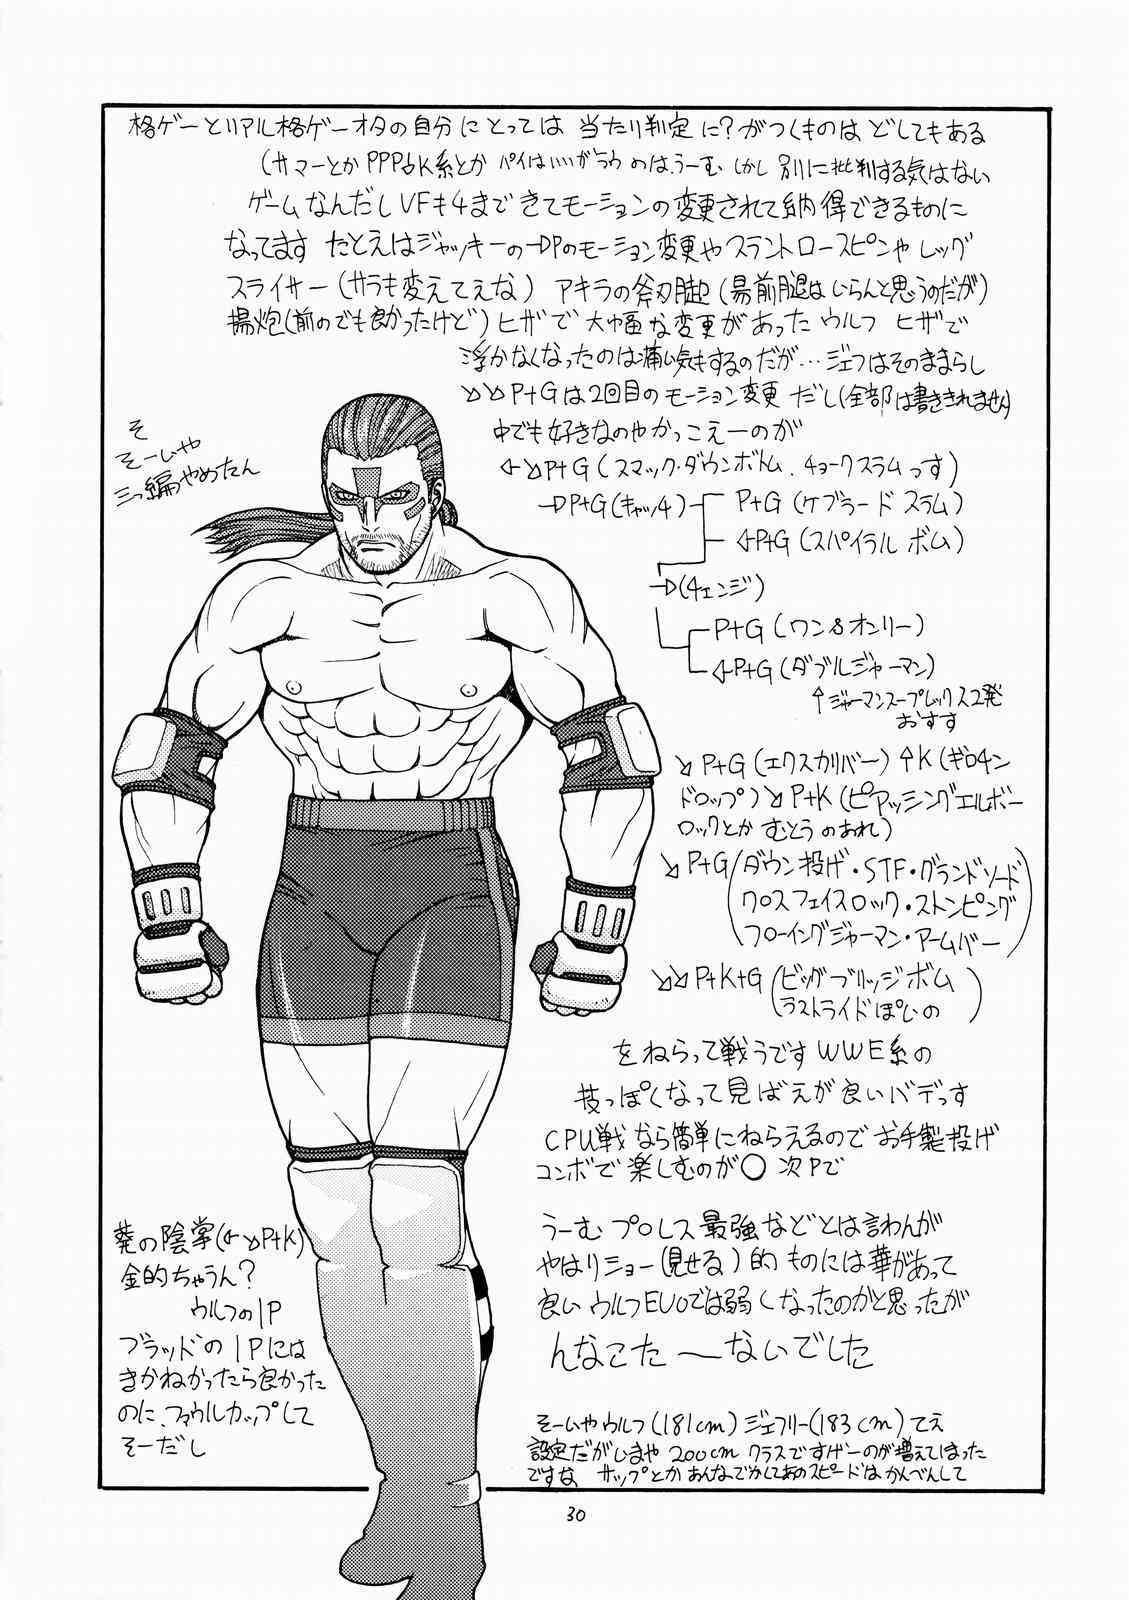 格ゲーとリアル格ゲーオタの自分にとっては 当たり判定に?がつくものは どしてもある
(サマーとか PPP↓K系とか パイはいいがラウのは、うーむ しかし 別に批判する気はない
ゲームなんだし VFも4まできてモーションの変更されて納得できるものに
なってます たとえばジャッキーの→Pのモーション変更や スラントロースピンや レッグ
スライサー (サラも変えてえな) アキラの斧刃脚 (昜前腿はいらんと思うのだが)
揚炮(前のでも良かったけど) ヒザで 大幅な変更があった ウルフ ヒザで
浮かなくなったのは痛い気もするのだが…ジェフはそのままらし
↘↘P+Gは2回目のモーション変更 だし(全部は書ききれません)
中でも好きなのやかっこえーのが
←↘P+G (スマック・ダウンボトム、チョークスラムっす)
→P+G(キャッチ) P+G (ケブラード スラム)
←P+G (スパイラル ボム)
→(チェンジ)
P+G (ワン&オンリー)
←P+G (ダブルジャーマン)
↑ジャーマンスープレックス2発
おすす
↘ P+G (エクスカリバー) ↑K (ギロチン
ドロップ) ↘ P+K (ピアッシングエルボー
ロックとか むとうのあれ)
↘P+G (ダウン投げ・STF・グランドソード
クロスフェイスロック・ストンピング
フローイングジャーマン・アームバー)
↘↘P+K+G (ビッグブリッジボム
ラストライドぽいの)
をねらって戦うです WWE系の
技っぽくなって見ばえが良いバデっす
CPU戦なら簡単にねらえるので お手製投げ
コンボで楽しむのが○ 次Pで
うーむ プロレス最強などとは言わんが
やはりショー(見せる)的ものには華があって
良い ウルフEVOでは弱くなったのかと思ったが
んなこた〜ないでした
そーいやウルフ(181cm) ジェフリー(183cm)てえ
設定だがいまや 200cm クラスですげーのが増えてしまった
ですな サップとか あんなでかしてあのスピードは かんべんして
そ
そーいや
三つ編やめたん
葵の陰掌(←↘P+K)
金的ちゃうん?
ウルフの1P
ブラッドの1Pには
きかねかったら良かった
のに、ファウルカップして
そーだし
30